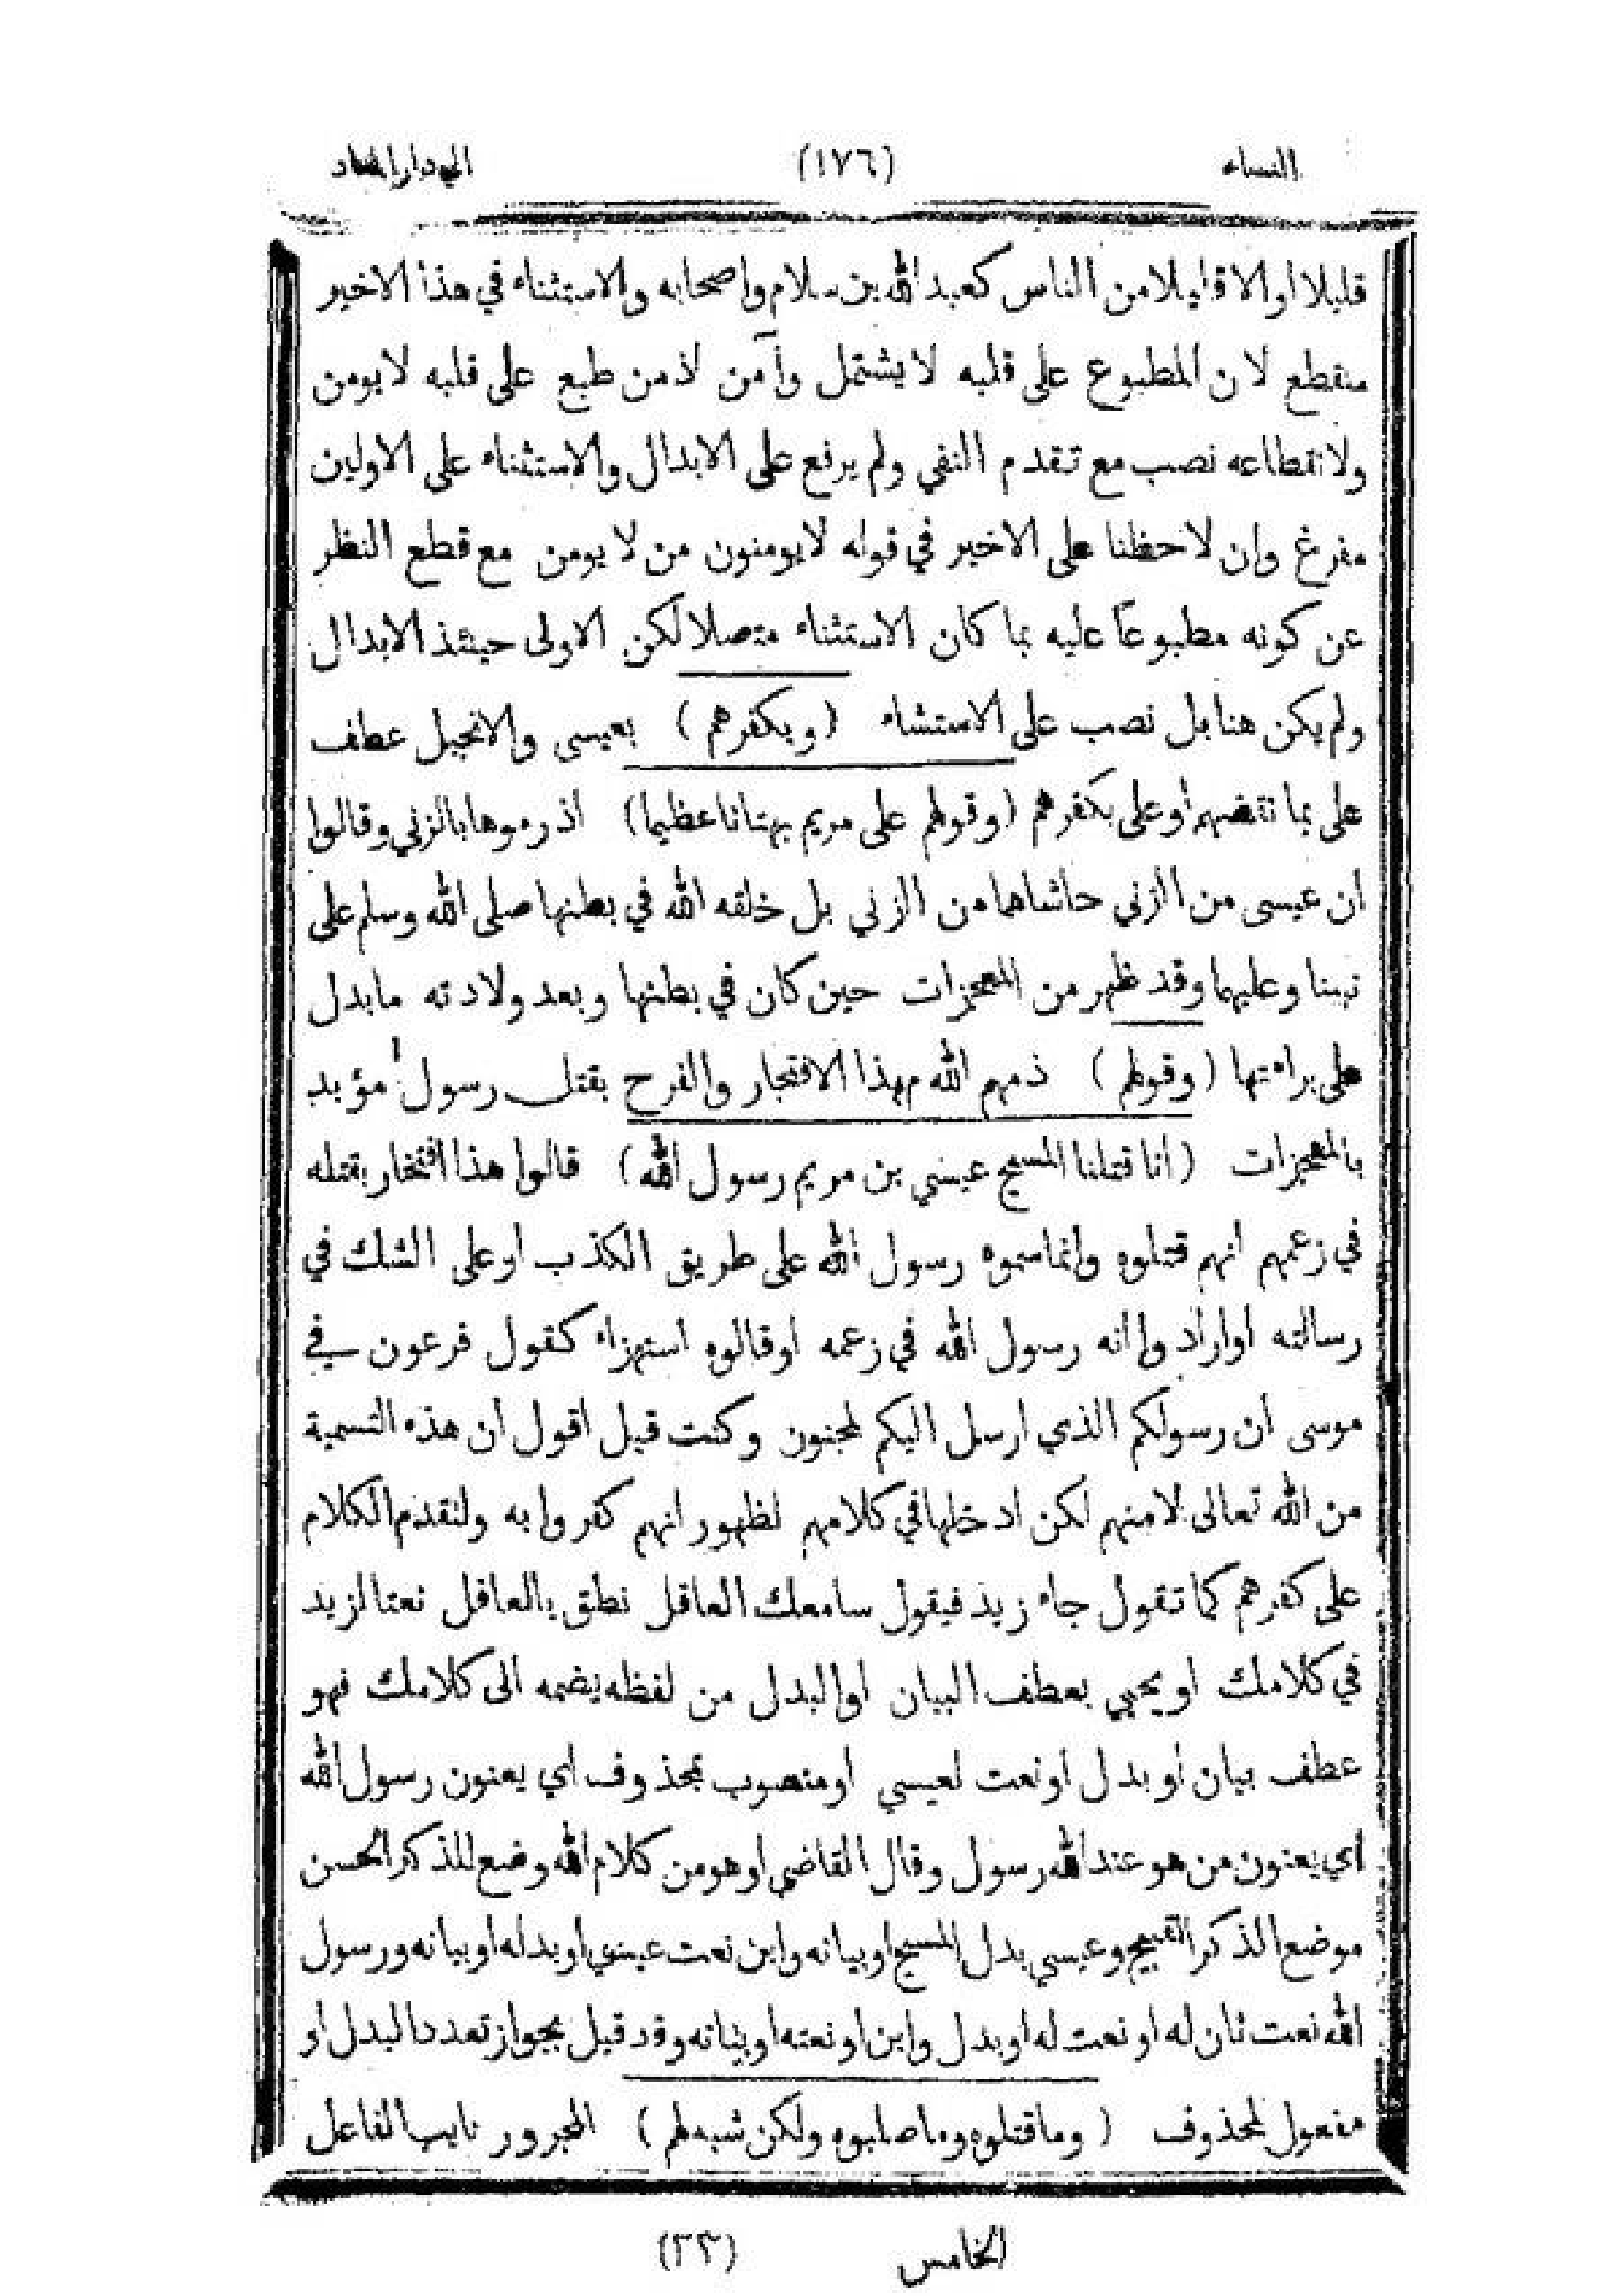 النساء (١٧٦) الى دار المعاد
قليلا او الا قليلا من الناس كعبد الله بن سلام واصحابه والاستثناء في هذا الاخير
منقطع لان المطبوع على قلبه لا يشتمل وآمن اذ من طبع على قلبه لا يومن
ولانقطاعه نصب مع تقدم النفي ولم يرفع على الابدال والاستثناء على الاولين
مفرغ وان لاحظنا على الاخير في قوله لا يومنون من لا يومن مع قطع النظر
عن كونه مطبوعاً عليه بما كان الاستثناء متصلا لكن الاولى حينئذ الابدال
ولم يكن هنا بل نصب على الاستثناء (وبكفرهم) بعيسى والانجيل عطف
على بما نقضهم او على بكفرهم (وقولهم على مريم بهتانا عظيما) اذ رموها بالزني وقالوا
ان عيسى من الزني حاشاهما من الزني بل خلقه الله في بطنها صلى الله وسلم على
نبينا وعليهما وقد ظهر من المعجزات حين كان في بطنها وبعد ولادته ما يدل
على براءتها (وقولهم) ذمهم الله بهذا الافتخار والفرح بقتل رسول مؤيد
بالمعجزات (انا قتلنا المسيح عيسي بن مريم رسول الله) قالوا هذا افتخار بقتله
في زعمهم انهم قتلوه وانما سموه رسول الله على طريق الكذب او على الشك في
رسالته او ارادوا انه رسول الله في زعمه او قالوه استهزاء كقول فرعون في
موسى ان رسولكم الذي ارسل اليكم لمجنون وكنت قبل اقول ان هذه التسمية
من الله تعالى لا منهم لكن ادخلها في كلامهم لظهور انهم كفروا به ولتقدم الكلام
على كفرهم كما تقول جاء زيد فيقول سامعك العاقل نطق بالعاقل نعتا لزيد
في كلامك او يجيي بعطف البيان او البدل من لفظه يضمه الى كلامك فهو
عطف بيان او بدل او نعت لعيسي او منصوب بمحذوف اي يعنون رسول الله
اي يعنون من هو عند الله رسول وقال القاضي او هو من كلام الله وضع للذكر الحسن
موضع الذكر القبيح وعيسي بدل المسيح او بيانه وابن نعت عيسي او بدله او بيانه ورسول
الله نعت ثان له او نعت له او بدل وابن او نعته او بيانه وقد قيل بجواز تعدد البدل او
مفعول لمحذوف (وما قتلوه وما صلبوه ولكن شبه لهم) المجرور نايب الفاعل
الخامس (٢٣)